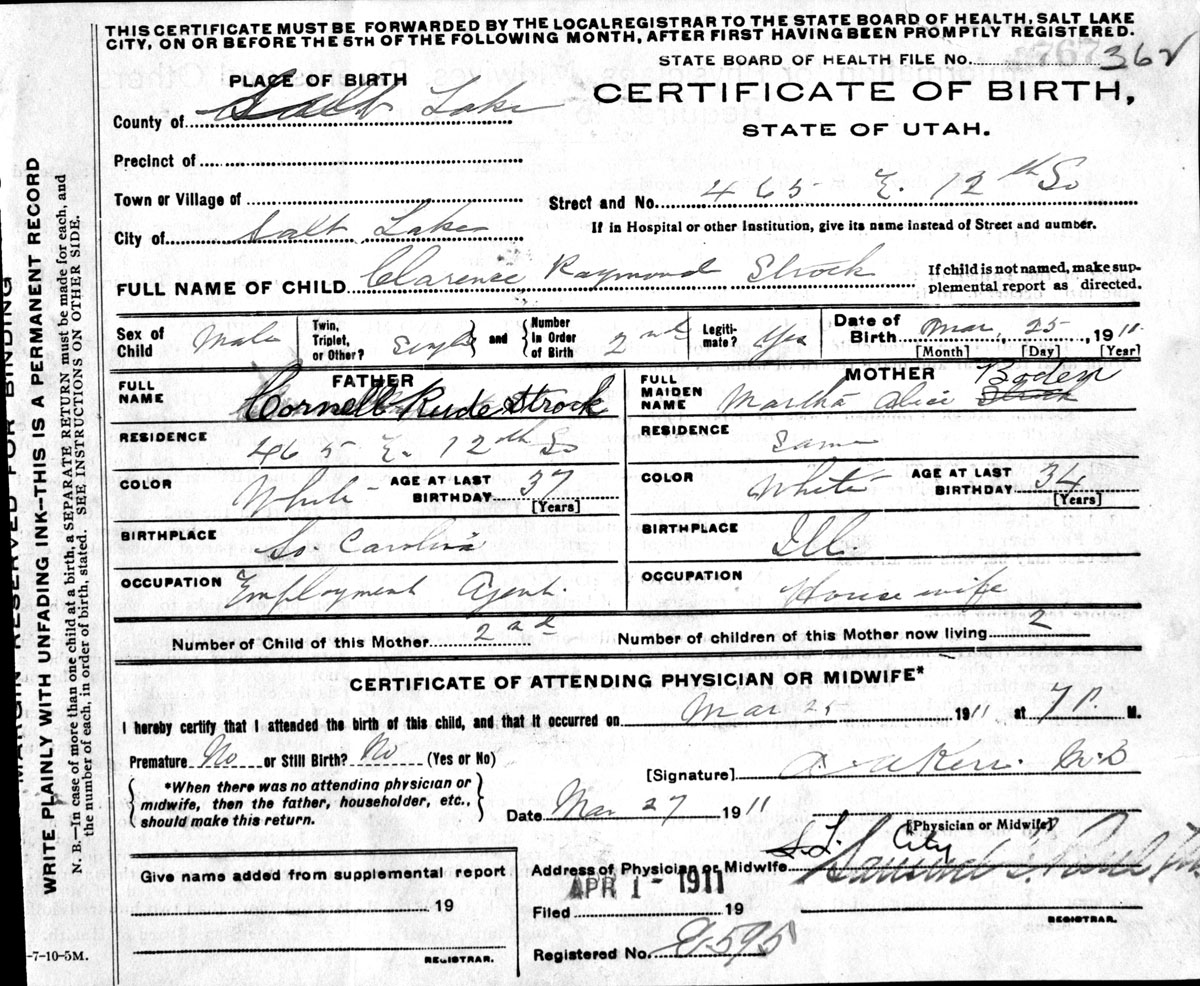 THIS CERTIFICATE MUST BE FORWARDED BY THE LOCAL REGISTRAR TO THE STATE BOARD OF HEALTH, SALT LAKE
CITY, ON OR BEFORE THE 5TH OF THE FOLLOWING MONTH, AFTER FIRST HAVING BEEN PROMPTLY REGISTERED.
STATE BOARD OF HEALTH FILE No. 362
PLACE OF BIRTH
CERTIFICATE OF BIRTH,
STATE OF UTAH.
County of Salt Lake
Precinct of
Town or Village of
Street and No. 465 E. 12th So
City of Salt Lake
If in Hospital or other Institution, give its name instead of Street and number.
FULL NAME OF CHILD Clarence Raymond Strock
If child is not named, make sup-
plemental report as directed.
Sex of Child Male
Twin, Triplet, or Other? Single and Number in Order of Birth 2nd
Legiti-mate? Yes
Date of Birth Mar, 25, 1911
[Month] [Day] [Year]
FATHER
FULL NAME Cornell Rude Strock
RESIDENCE 465 E. 12th So
COLOR White AGE AT LAST BIRTHDAY 37
[Years]
BIRTHPLACE So Carolina
OCCUPATION Employment Agent.
MOTHER
FULL MAIDEN NAME Martha Alice Strock Boden
RESIDENCE Same
COLOR White AGE AT LAST BIRTHDAY 34
[Years]
BIRTHPLACE Ill.
OCCUPATION Housewife
Number of Child of this Mother 2nd Number of children of this Mother now living 2
CERTIFICATE OF ATTENDING PHYSICIAN OR MIDWIFE*
I hereby certify that I attended the birth of this child, and that it occurred on Mar 25 1911 at 7 P. M.
Premature No or Still Birth? No (Yes or No)
*When there was no attending physician or
midwife, then the father, householder, etc.,
should make this return.
[Signature] Kerr M.D
Date Mar 27 1911
[Physician or Midwife]
Address of Physician or Midwife S. L. City
Give name added from supplemental report
19
REGISTRAR.
APR 1 - 1911
Filed 19
REGISTRAR.
Registered No. 8595
-7-10-5M.
MARGIN RESERVED FOR BINDING
WRITE PLAINLY WITH UNFADING INK—THIS IS A PERMANENT RECORD
N. B.—In case of more than one child at a birth, a SEPARATE RETURN must be made for each, and
the number of each, in order of birth, stated. SEE INSTRUCTIONS ON OTHER SIDE.